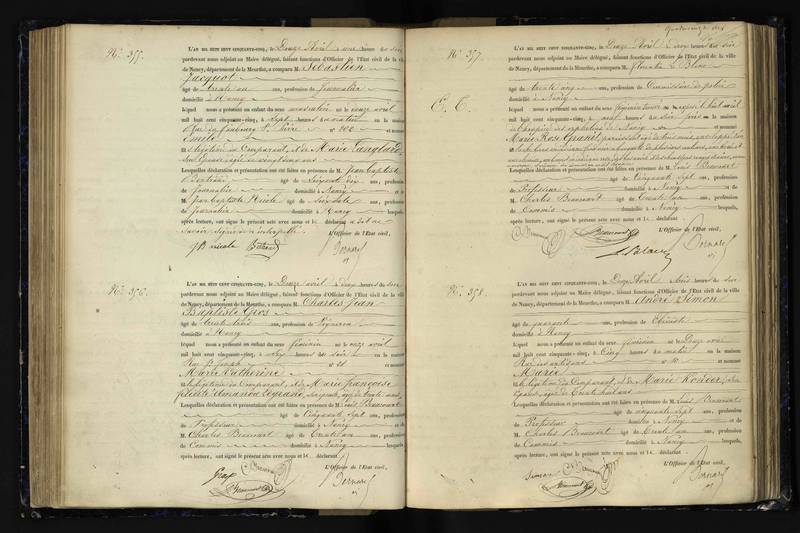 Nº. 355.
L'AN MIL HUIT CENT CINQUANTE-CINQ, le Douze Avril à une heure du soir
pardevant nous adjoint au Maire délégué, faisant fonctions d'Officier de l'Etat civil de la ville
de Nancy, département de la Meurthe, a comparu M. Sébastien
Jacquot
âgé de trente ans, profession de Journalier
domicilié à Nancy
lequel nous a présenté un enfant du sexe masculin né le onze avril
mil huit cent cinquante-cinq, à sept heures du matin en la maison
Rue du faubourg St. Pierre nº 200 et nommé
Emile
fils légitime du Comparant, et de Marie Langlard
son épouse âgée de vingt ans
Lesquelles déclaration et présentation ont été faites en présence de M. Jean baptiste
Bertrand âgé de soixante dix ans, profession
de Journalier domicilié à Nancy et de
M. Jean baptiste Nicole âgé de
de Journalier domicilié à Nancy lesquels,
après lecture, ont signé le présent acte avec nous et le déclarant
savoir signer de ce interpellé
L'Officier de l'Etat civil,
JB nicole Bertrand Bernard
Nº. 356.
L'AN MIL HUIT CENT CINQUANTE-CINQ, le Douze avril à deux heures du soir
pardevant nous adjoint au Maire délégué, faisant fonctions d'Officier de l'Etat civil de la ville
de Nancy, département de la Meurthe, a comparu M. Charles Jean
Baptiste Gros
âgé de trente trois ans, profession de Vigneron
domicilié à Nancy
lequel nous a présenté un enfant du sexe féminin né le onze avril
mil huit cent cinquante-cinq, à six heures du soir en la maison
Rue St Joseph nº 21 et nommé
Marie Catherine
fille légitime du Comparant, et de Marie françoise
félicité Amanda Legrand, son épouse, âgée de trente ans
Lesquelles déclaration et présentation ont été faites en présence de M. Louis Beaucourt
âgé de Cinquante sept ans, profession
de Professeur domicilié à Nancy et de
M. Charles Beaucourt âgé de trente un ans, profession
de Commis domicilié à Nancy lesquels,
après lecture, ont signé le présent acte avec nous et le déclarant.
L'Officier de l'Etat civil,
Gros Beaucourt Bernard
Nº. 357.
E. C.
L'AN MIL HUIT CENT CINQUANTE-CINQ, le Douze Avril à deux heures du soir
pardevant nous adjoint au Maire délégué, faisant fonctions d'Officier de l'Etat civil de la ville
de Nancy, département de la Meurthe, a comparu M. Florentin Le Blanc
âgé de trente cinq ans, profession de Commissaire de police
domicilié à Nancy
lequel nous a présenté un enfant du sexe féminin trouvé exposé le huit avril
mil huit cent cinquante-cinq, à neuf heures du soir
de l'hospice des orphelins de Nancy et nommé
Marie Rose Granet
Lesquelles déclaration et présentation ont été faites en présence de M. Louis Beaucourt
âgé de Cinquante sept ans, profession
de Professeur domicilié à Nancy et de
M. Charles Beaucourt âgé de trente un ans, profession
de Commis domicilié à Nancy lesquels,
après lecture, ont signé le présent acte avec nous et le déclarant
L'Officier de l'Etat civil,
Beaucourt Le Blanc Bernard
Nº. 358.
L'AN MIL HUIT CENT CINQUANTE-CINQ, le Douze Avril à trois heures du soir
pardevant nous adjoint au Maire délégué, faisant fonctions d'Officier de l'Etat civil de la ville
de Nancy, département de la Meurthe, a comparu M. André Simon
âgé de quarante ans, profession de Ebéniste
domicilié à Nancy
lequel nous a présenté un enfant du sexe féminin né le Douze avril
mil huit cent cinquante-cinq, à Cinq heures du matin en la maison
Rue des artisans nº et nommé
Marie
fille légitime du Comparant, et de Marie son
épouse, âgée de trente huit ans
Lesquelles déclaration et présentation ont été faites en présence de M. Louis Beaucourt
âgé de cinquante sept ans, profession
de Professeur domicilié à Nancy et de
M. Charles Beaucourt âgé de trente un ans, profession
de Commis domicilié à Nancy lesquels,
après lecture, ont signé le présent acte avec nous et le déclarant.
L'Officier de l'Etat civil,
Simon Beaucourt Bernard